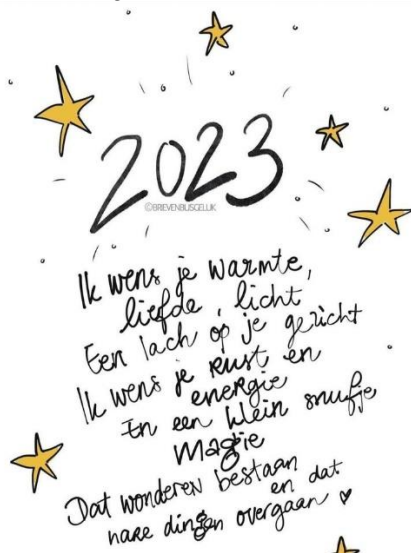 2023
©BRIEVENBUSGELUK
Ik wens je warmte,
liefde, licht
Een lach op je gezicht
Ik wens je rust en
energie
En een klein snufje
magie
Dat wonderen bestaan
en dat
nare dingen overgaan ♥